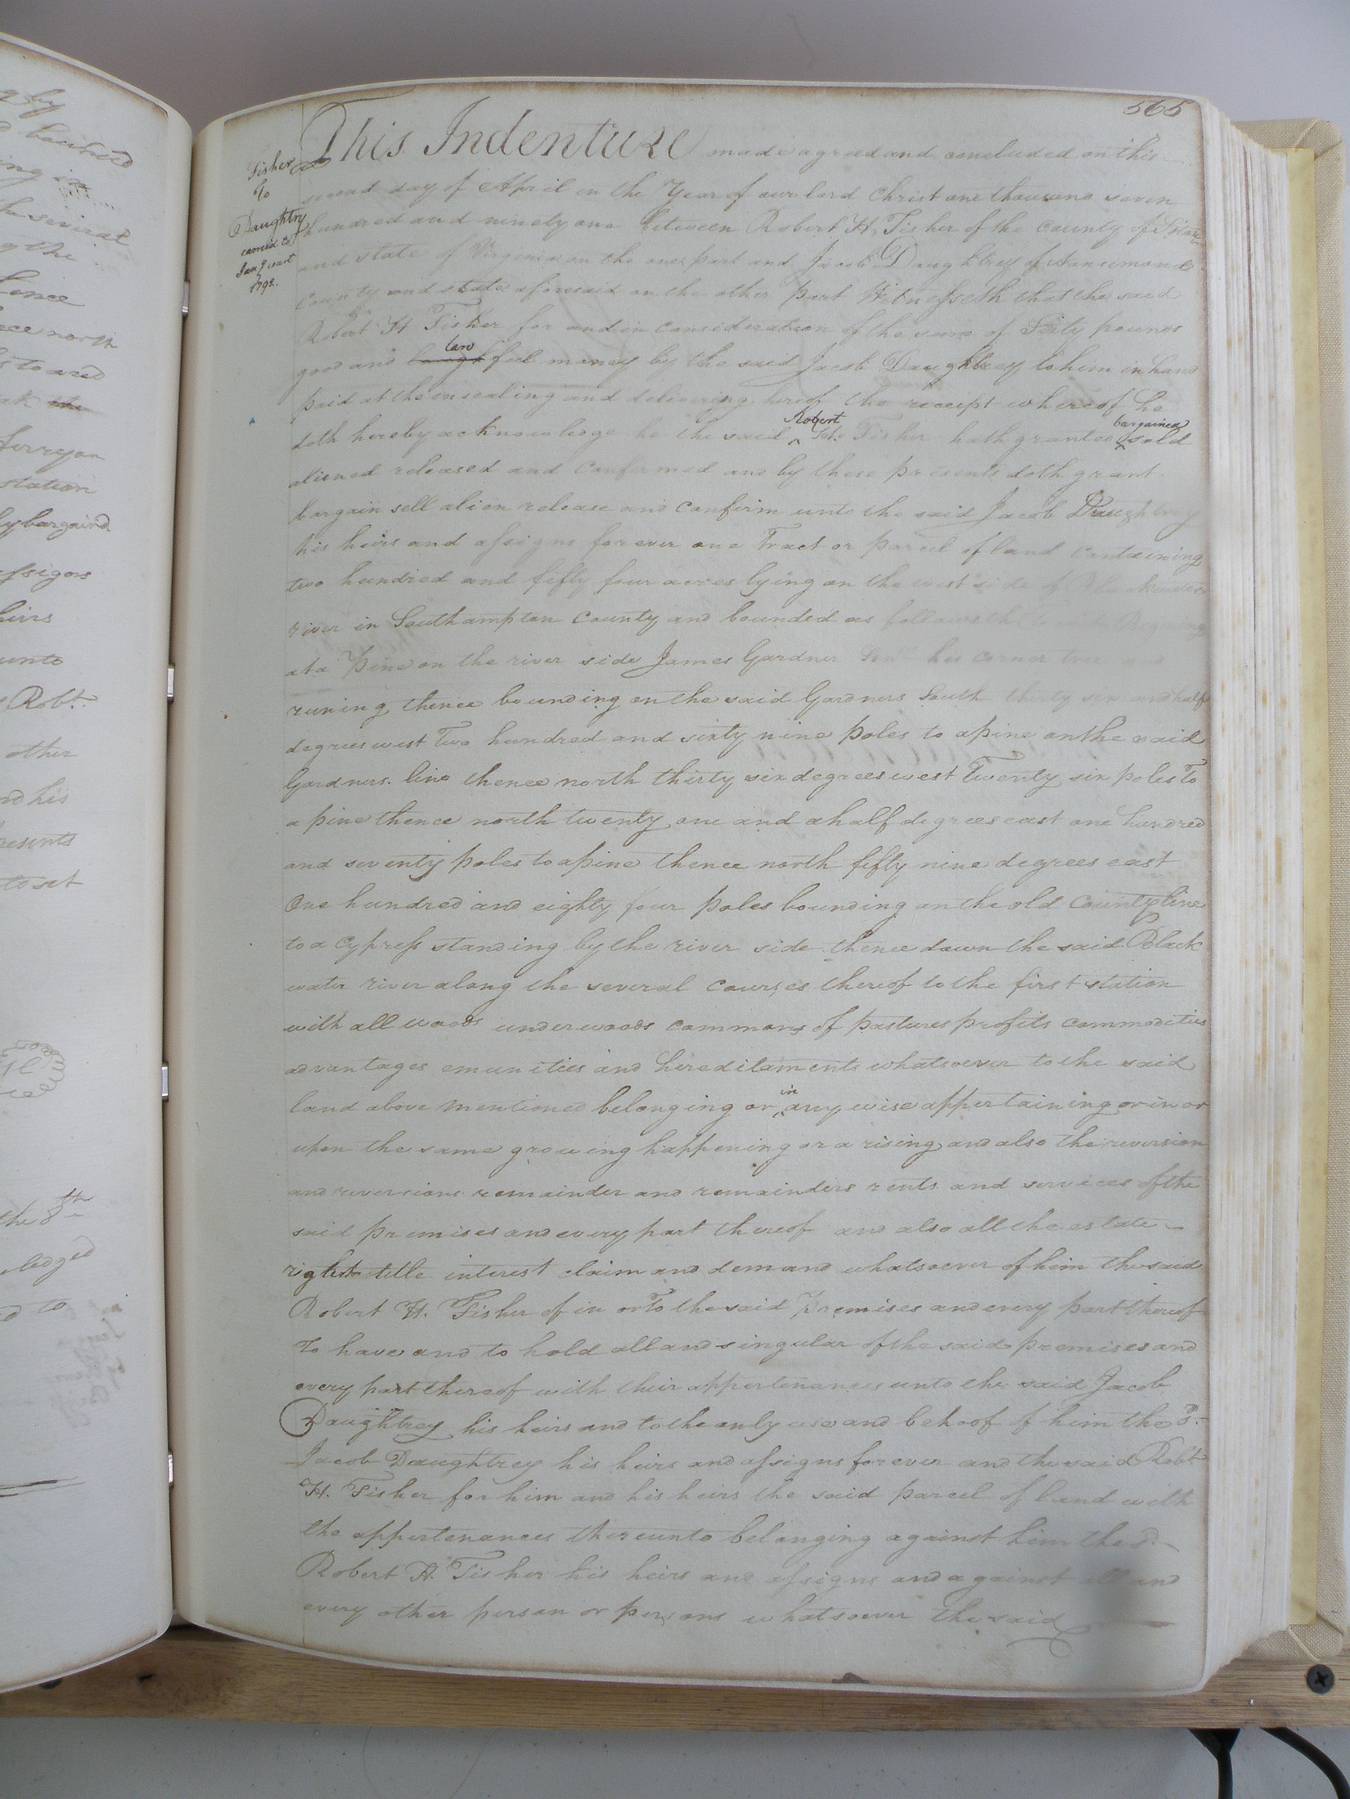 565
Fisher
to
Daughtry
Jany Court
1792.
This Indenture made agreed and concluded on this
second day of April in the Year of our lord Christ one thousand seven
hundred and ninety one between Robert H. Fisher of the County of
and state of Virginia on the one part and Jacob Daughtrey of Nansemond
County and state aforesaid on the other part Witnesseth that the said
Robert H Fisher for and in consideration of the sum of Sixty pounds
good and law full money by the said Jacob Daughtrey to him in hand
paid at the ensealing and delivering hereof the receipt whereof he
doth hereby acknowledge he the said Robert H. Fisher hath granted bargained sold
aliened released and confirmed and by these presents doth grant
bargain sell alion release and confirm unto the said Jacob Daughtrey
his heirs and assigns for ever one Tract or parcel of land containing
two hundred and fifty four acres lying on the west side of Blackwater
river in Southampton County and bounded as followeth Begining
at a pine on the river side James Gardner Senr his corner tree and
runing thence bounding on the said Gardners South thirty six and half
degrees west Two hundred and sixty nine poles to a pine on the said
Gardners line thence north thirty six degrees west Twenty six poles To
a pine thence north twenty one and a half degrees east one hundred
and seventy poles to a pine thence north fifty nine degrees east
One hundred and eighty four poles bounding on the old County line
to a cypress standing by the river side thence down the said Black
water river along the several courses thereof to the first station
with all woods underwoods commons of pastures profits commodities
advantages emunities and hereditaments whatsoever to the said
land above mentioned belonging or in any wise appertaining or in or
upon the same growing happening or a rising and also the reversion
and reversions remainder and remainders rents and services of the
said premises and every part thereof and also all the estate
right title interest claim and demand whatsoever of him the said
Robert H. Fisher of in or To the said Premises and every part thereof
To have and to hold all and singular of the said premises and
every part thereof with their appertenances unto the said Jacob
Daughtrey his heirs and to the only use and behoof of him the sd.
Jacob Daughtrey his heirs and assigns for ever and the said Robt
H. Fisher for him and his heirs the said parcel of land with
the appertenances thereunto belonging against him the sd.
Robert H. Fisher his heirs and assigns and against all and
every other person or persons whatsoever the said